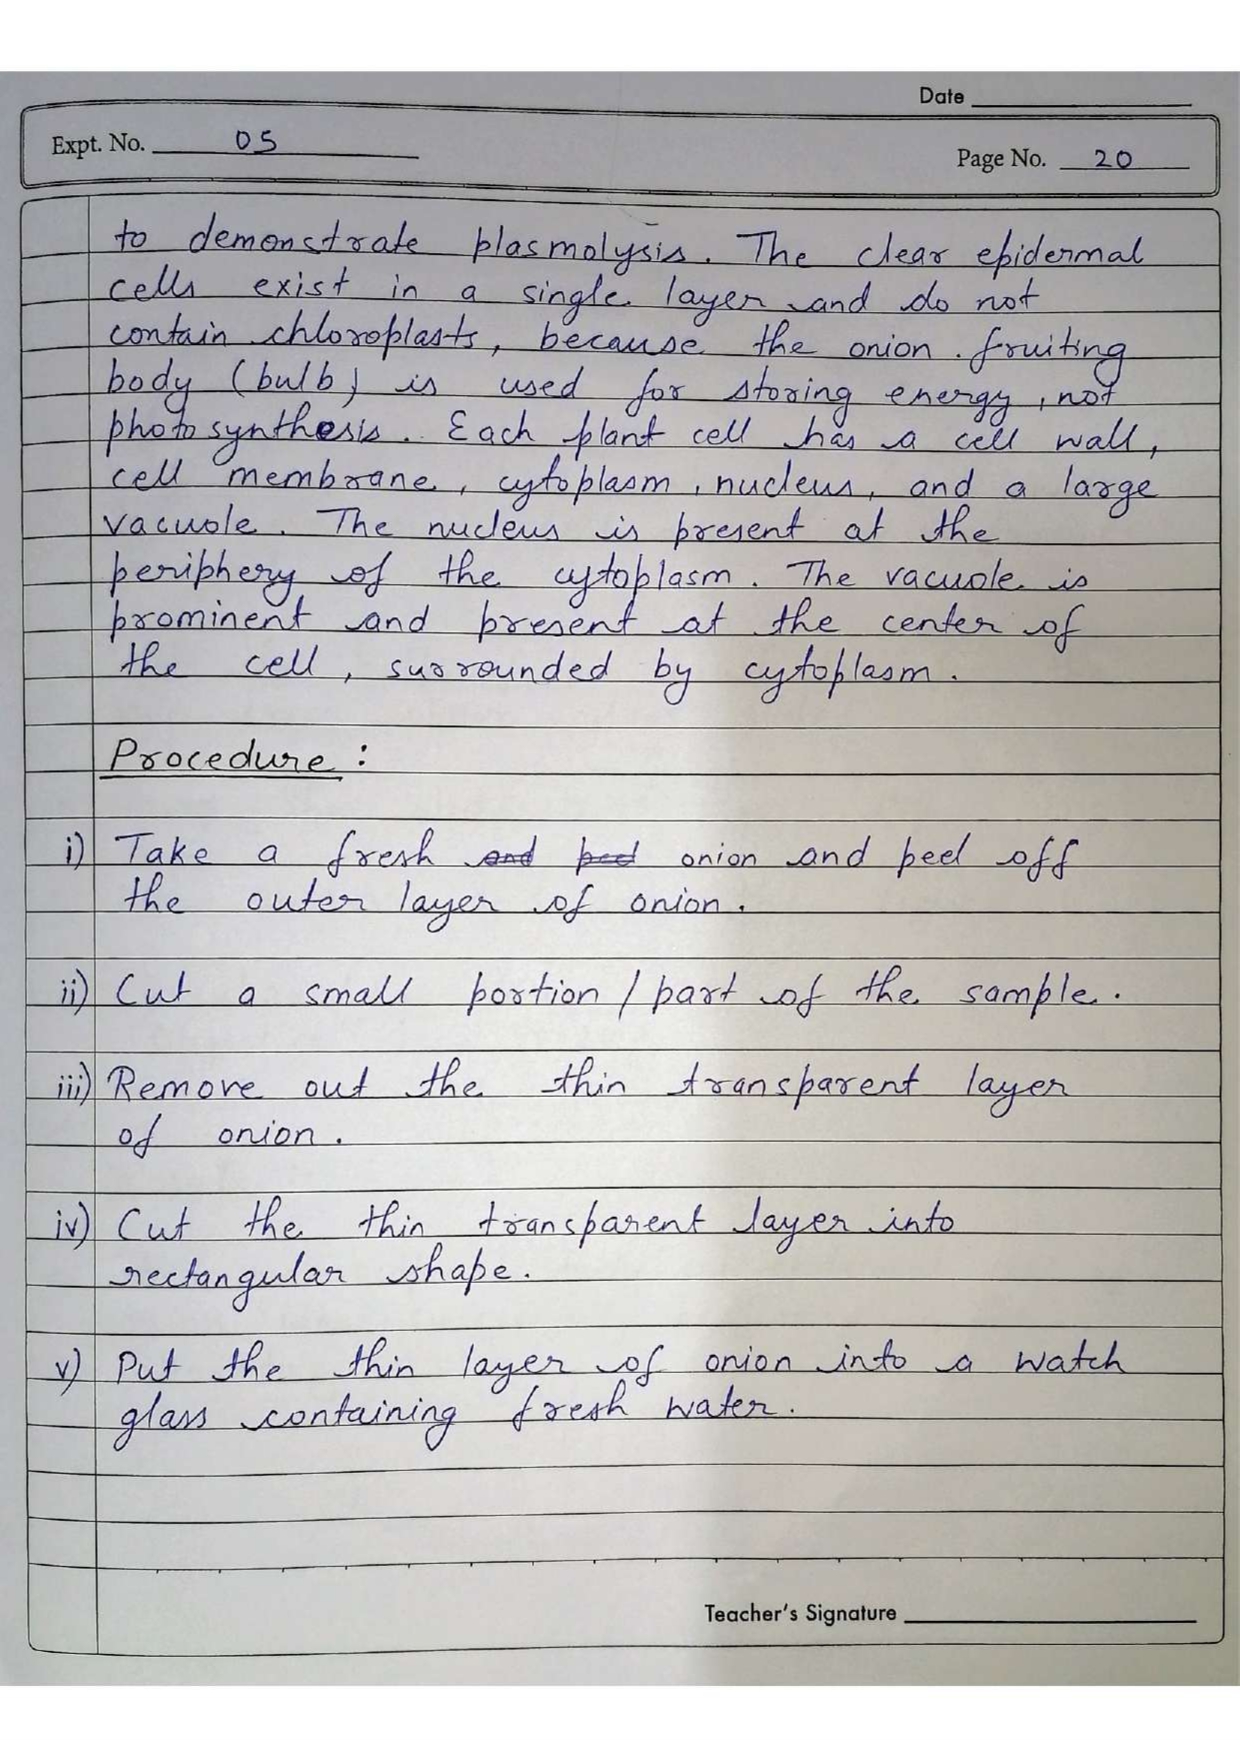 Date
Expt. No. 05
Page No. 20
to demonstrate plasmolysis. The clear epidermal
cells exist in a single layer and do not
contain chloroplasts, because the onion fruiting
body (bulb) is used for storing energy, not
photosynthesis. Each plant cell has a cell wall,
cell membrane, cytoplasm, nucleus, and a large
vacuole. The nucleus is present at the
periphery of the cytoplasm. The vacuole is
prominent and present at the center of
the cell, surrounded by cytoplasm.
Procedure :
i) Take a fresh and peel onion and peel off
the outer layer of onion.
ii) Cut a small portion / part of the sample.
iii) Remove out the thin transparent layer
of onion.
iv) Cut the thin transparent layer into
rectangular shape.
v) Put the thin layer of onion into a watch
glass containing fresh water.
Teacher's Signature